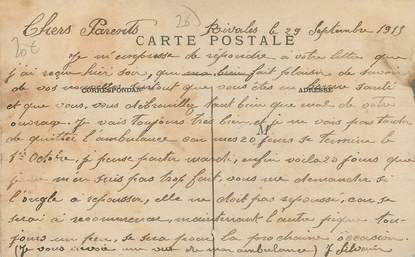 Chers Parents Rivales le 29 Septembre 1915
CARTE POSTALE
Je m'empresse de répondre à votre lettre que
j'ai reçue hier soir, que fait plaisir de savoir
de vos surtout que vous êtes en bonne santé
CORRESPONDANCE ADRESSE
et que vous, vous débrouillez tant bien que mal de votre
ouvrage. Je vais toujours très bien et je ne vais pas tarder
M
de quitter l'ambulance car mes 20 jours se termine le
1er Octobre. Je pense partir mardi, enfin voila 20 jours que
je ne m'en suis pas trop fait, vous me demandez si
l'ongle a repousser, elle ne doit pas repousser, car se
serai à recommencer, maintenant l'autre pique tou-
jours un peu, se sera pour la prochaine occasion.
(Je vous envoie une vue de mon ambulance) J Silvain